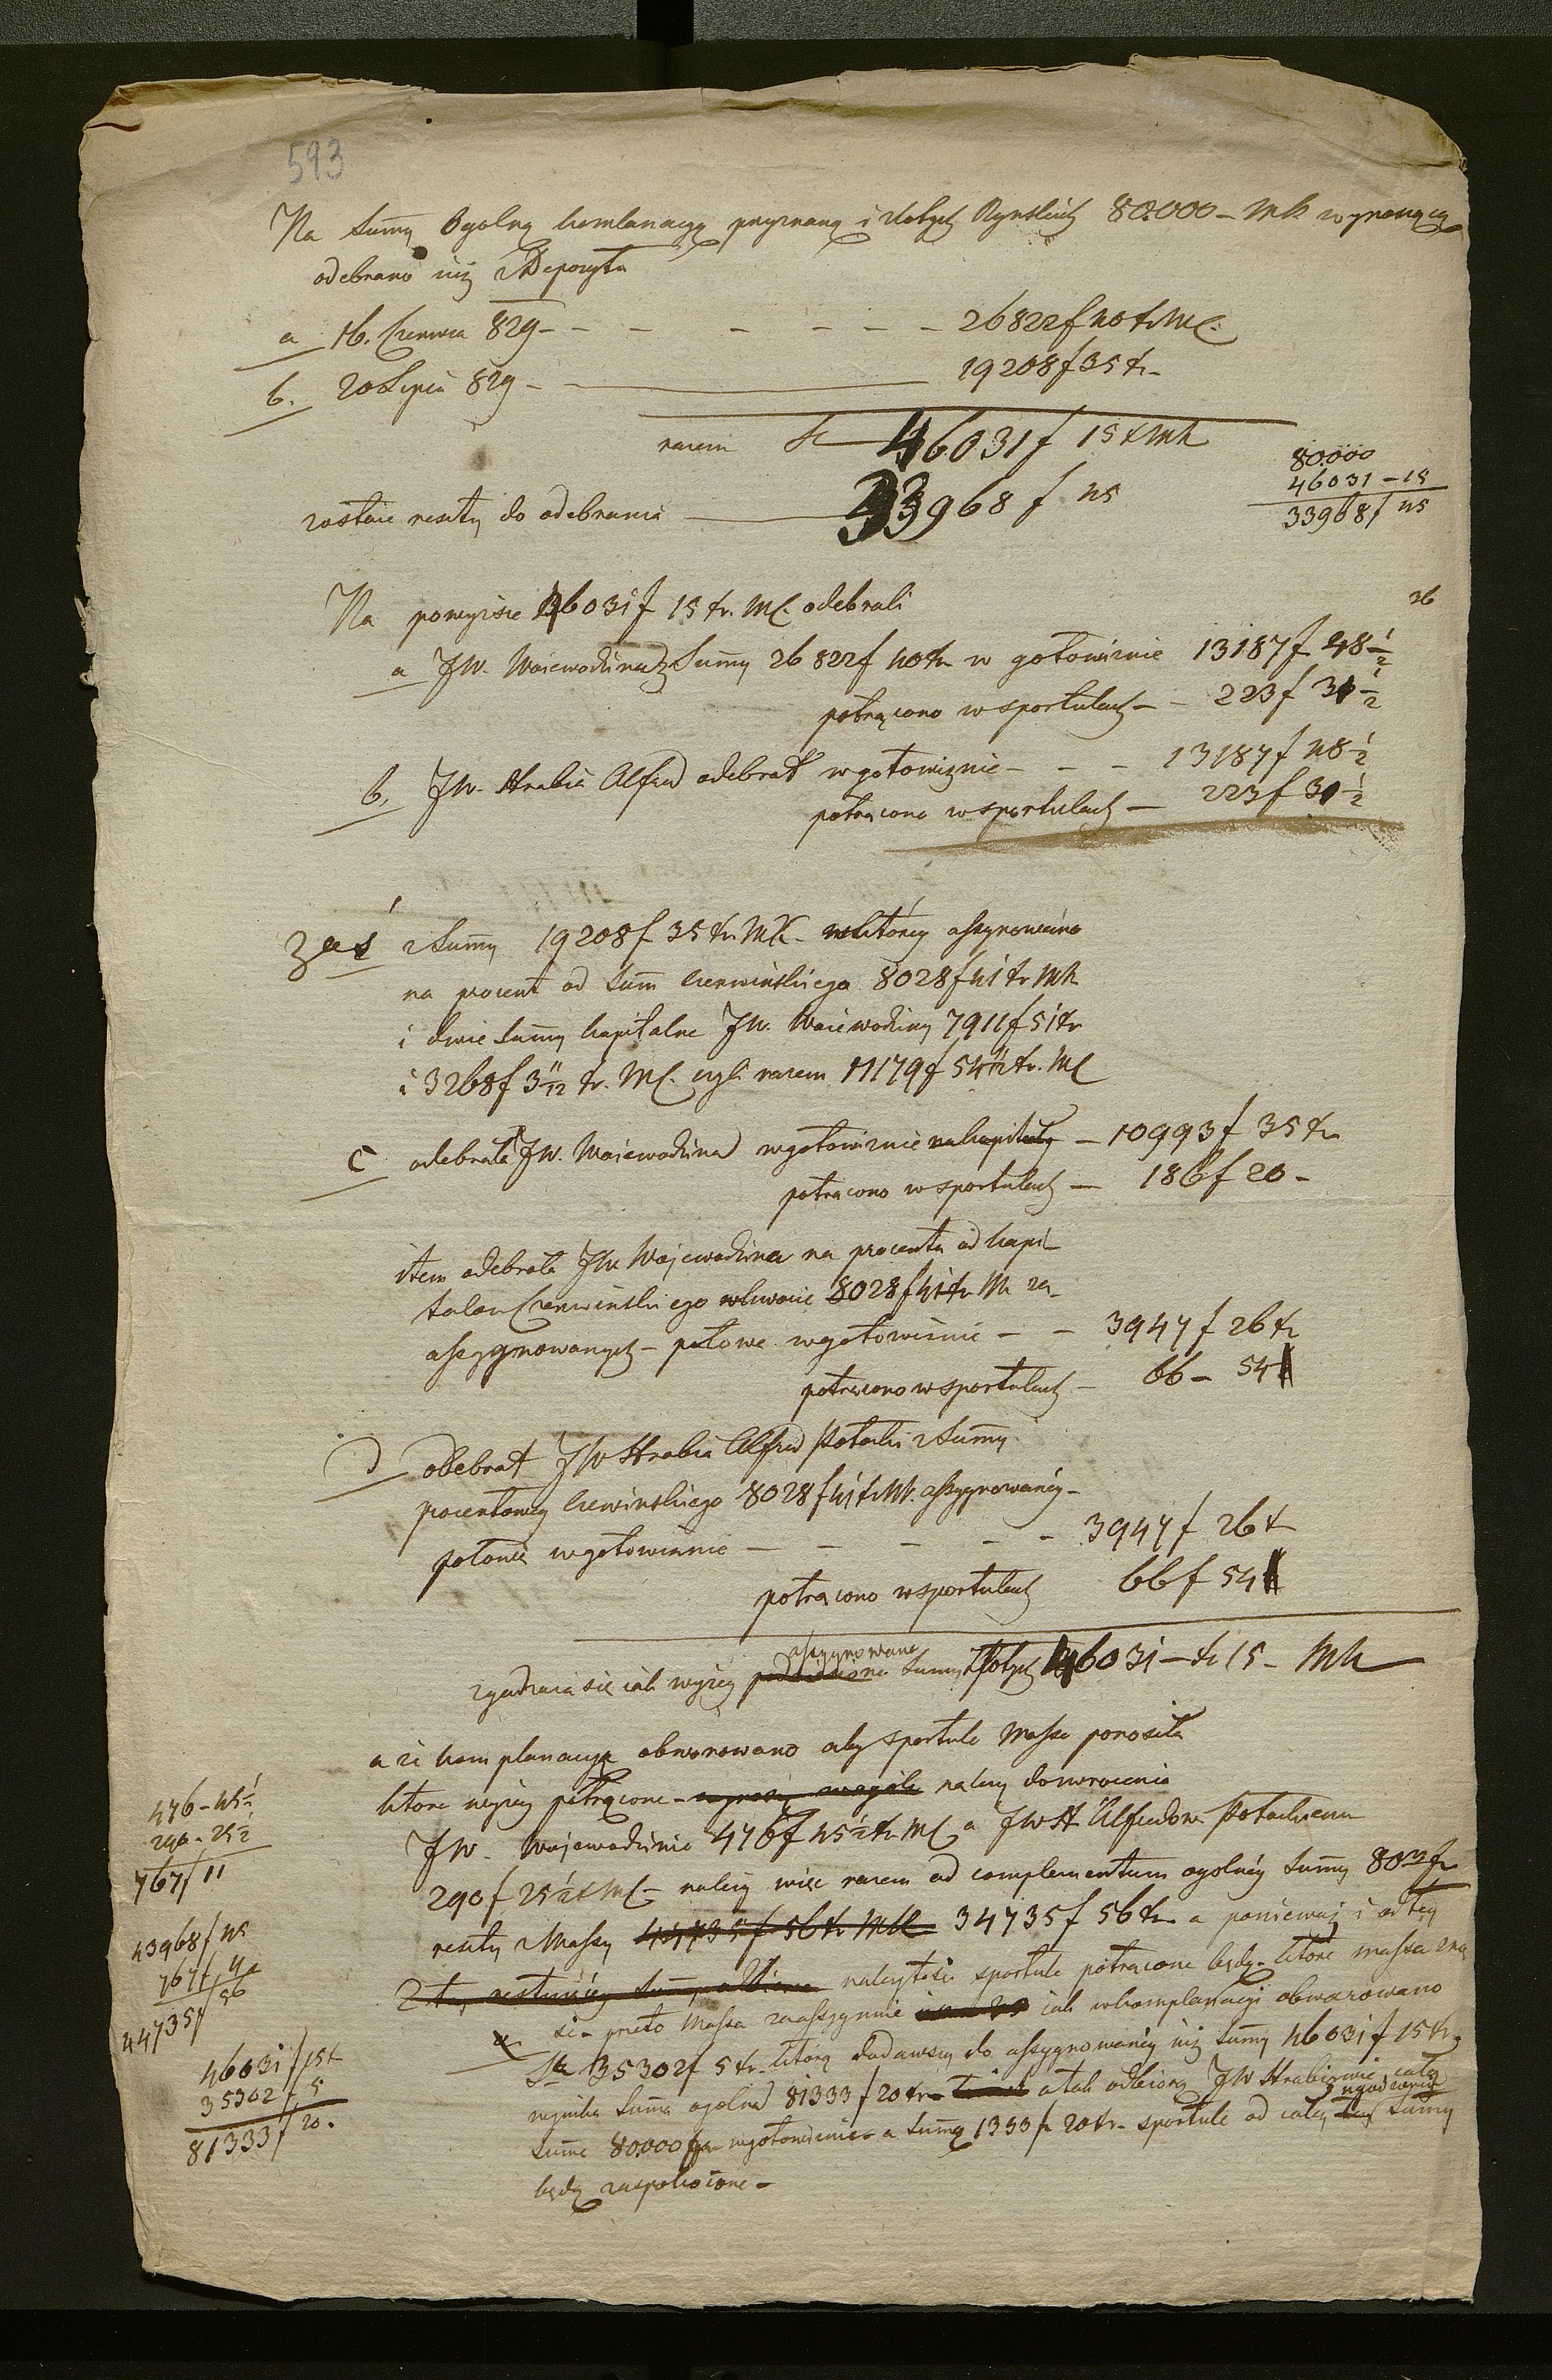 593
Na Summę Ogolną komlanacyą przyznaną i Złotych Rynskich 80.000 – Mk wynoszącą
odebrano iuż z Depozytu
a 16. Czerwca 829 – – – – – – – 26822 f 40 kr MC.
b. 20 Lipca 829 – 19208 f 35 kr –
razem fr 46031 f 15 x Mk
zostaie reszty do odebrania 33968 f 45
80.000
46031 – 15
33968 f 45
Na powyższe 46031 f 15 kr. MC. odebrali
36
a JW. Woiewodzina z Summy 26822 f 40 kr w gotowiznie 13187 f 48 ½
potrącono w sportulach – – 223 f 31 ½
b, JW. Hrabia Alfred odebrał w gotowiznie – – – 13187 f 48 ½
potrącono w sportulach – 223 f 31 ½
Zaś z Summy 19208 f 35 kr. MK. w którey assygnowano
na procent od Summ Czerwińskiego 8028 f 41 kr Mk
i dwie Summy kapitalne JW. Woiewodziny 7911 f 51 kr
i 3268 f 3 11/12 kr. MC. czyli razem 11179 f 54 11/12 kr. MC
C odebrała JW. Woiewodzina w gotowiznie na kapitały – 10993 f 35 kr
potrącono w sportulach – 186 f 20 –
item odebrała JW. Wojewodzina na procenta od kapi-
talow Czerwińskiego w kwocie 8028 f 41 kr Mk za-
assygnowanych – połowe w gotowiznie – – 3947 f 26 kr
potrącono w sportulach – 66 – 54
D odebrał JW Hrabia Alfred Potocki z Summy
procentowey Czerwinskiego 8028 f 41 kr Mk. assygnowaney –
połowie w gotowiznie – – – – – 3947 f 26 x
potrącono w sportulach 66 f 54
assygnowana
zgadzaia się iak wyżey Summy Złotych 46031 – kr 15 – Mk
a że kamplanacyą obwarowano aby sportule Massa ponosiła
które wyżey potrącone – należy do zwrocenia
JW. Wojewodzinie 476 f 45 ½ kr MC a JWH Alfredowi Potockiemu
290 f 25 ½ x MC – należy więc razem ad complementum ogolney Summy 80 m fr
reszty z Massy 44735 f 56 kr MK 34735 f 56 kr – a poniewaź i od tey
należytości sportule potrącone będą – które massa zna
si – przeto Massa zaassygnuie iak w komplanacyi obwarowano
Sa 35302 f 5 kr – którą dodawszy do assygnowaney iuż Summy 46031 f 15 kr –
wynika Summa ogolna 81333 f 20 kr – a tak odbiorą JW Hrabiowie całą
ugodzoney
Summe 80.000 fr w gotowiznie – a Summą 1333 f 20 kr – sportule od całey Summy
będą zaspokoione –
476 – 45 ½
290 – 25 ½
767 f 11
43968 f 45
767 f 11
44735 f 56
46031 f 15 x
35302 f 5
81333 f 20.